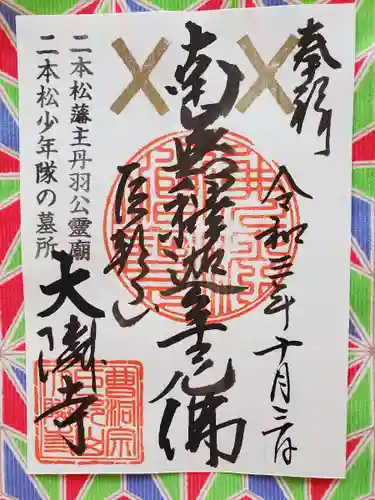 奉拝
令和三年十月三日
南無釋迦牟尼佛
巨邦山
二本松藩主丹羽公霊廟
二本松少年隊の墓所
大隣寺
曹洞宗